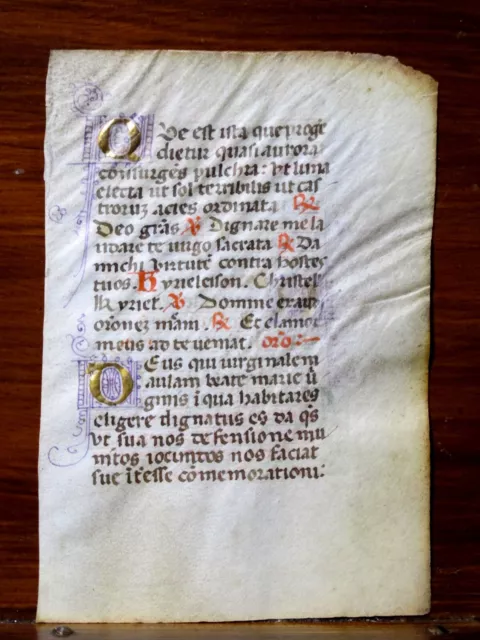 Que est ista que progre
dietur quasi aurora
consurgēs pulchra: ut luna
electa ut sol terribilis ut cas
trorum acies ordinata ℟
Deo grās ℣ Dignare me la
udare te virgo sacrata ℟ Da
michi virtutē contra hostes
tuos. Kyrieleison. Christel
Kyriel. ℣ Domine exaudi
orōnez meam. ℟ Et clamor
meus ad te veniat. orō:
Deus qui virginalem
aulam beate marie v̄
ginis ī qua habitares
eligere dignatus es da q̄s
ut sua nos defensione mu
nitos iocundos nos faciat
sue īteresse cōmemorationi: